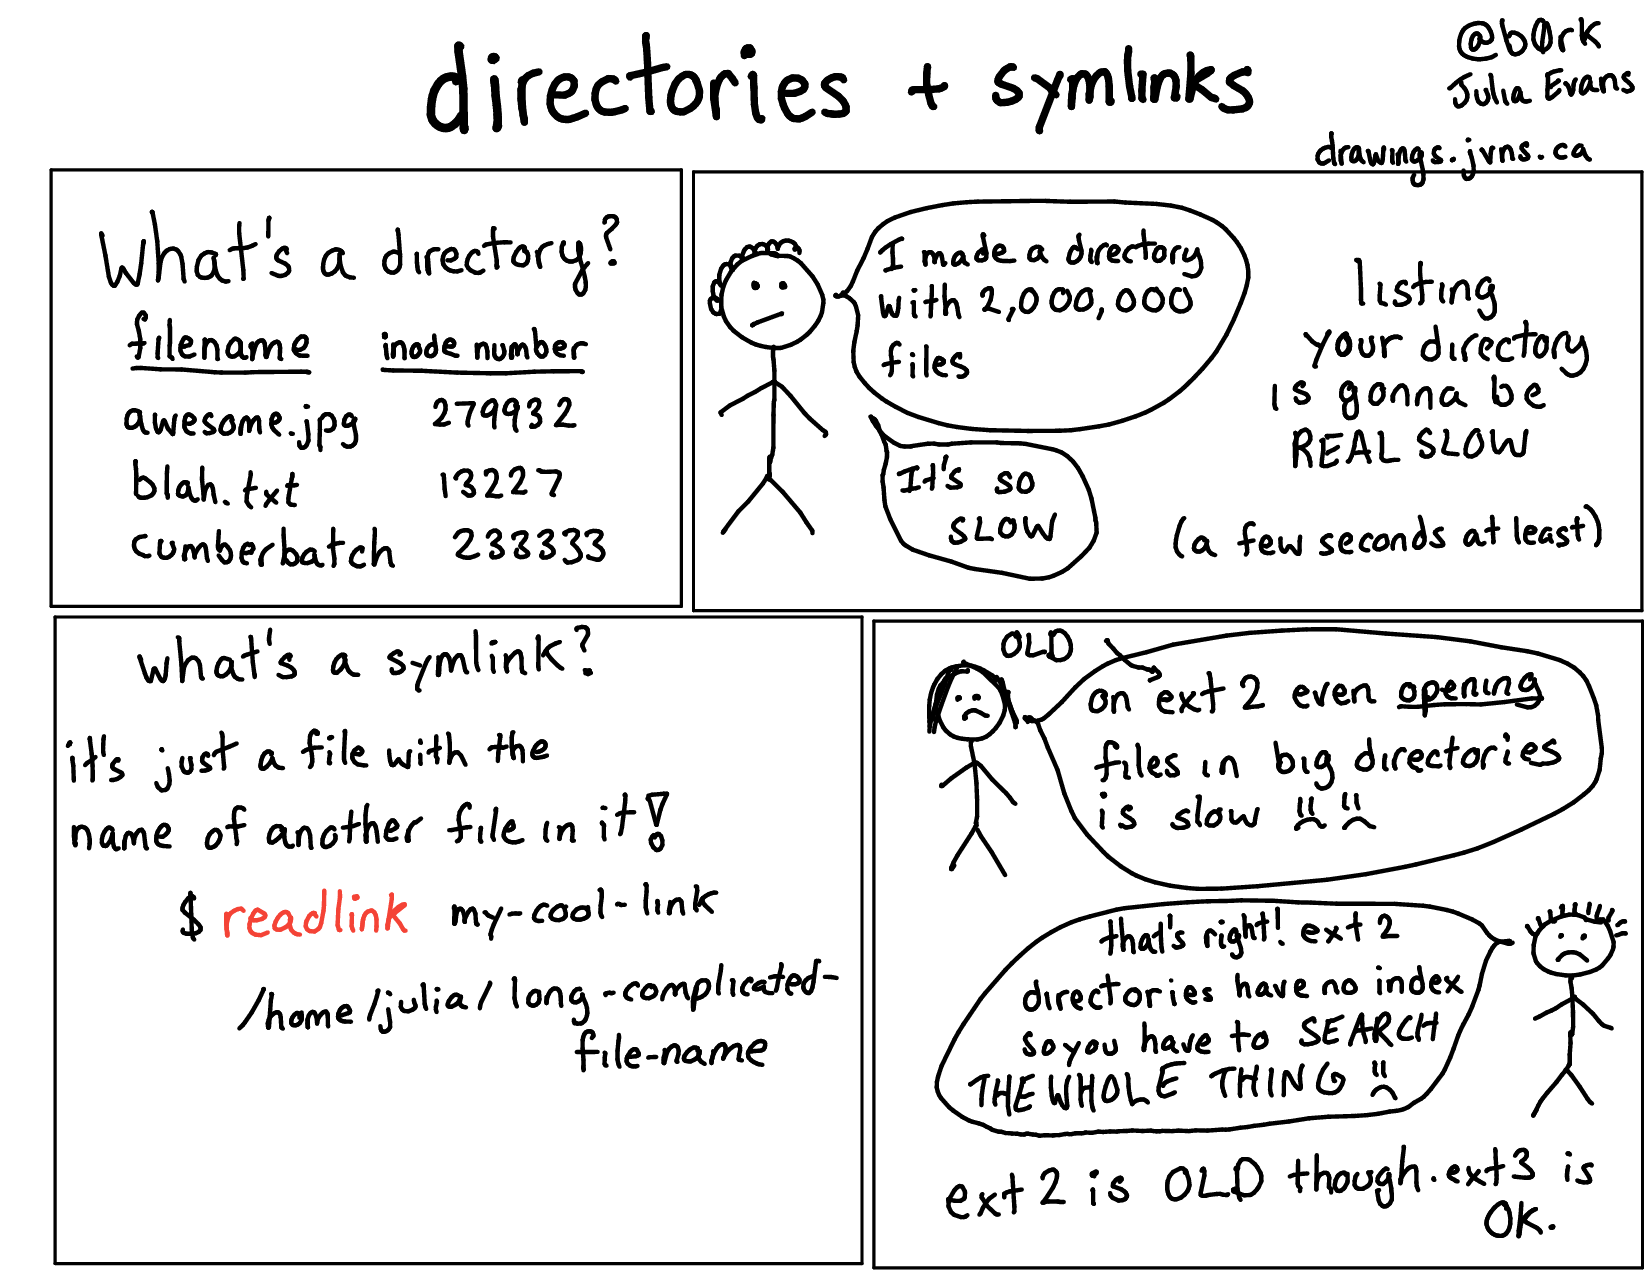 directories + symlinks
@b0rk
Julia Evans
drawings.jvns.ca
What's a directory?
filename inode number
awesome.jpg 279932
blah.txt 13227
cumberbatch 233333
I made a directory
with 2,000,000
files
It's so
SLOW
listing
your directory
is gonna be
REAL SLOW
(a few seconds at least)
what's a symlink?
it's just a file with the
name of another file in it!
$ readlink my-cool-link
/home/julia/long-complicated-
file-name
OLD
on ext2 even opening
files in big directories
is slow
that's right! ext2
directories have no index
so you have to SEARCH
THE WHOLE THING
ext2 is OLD though. ext3 is
OK.